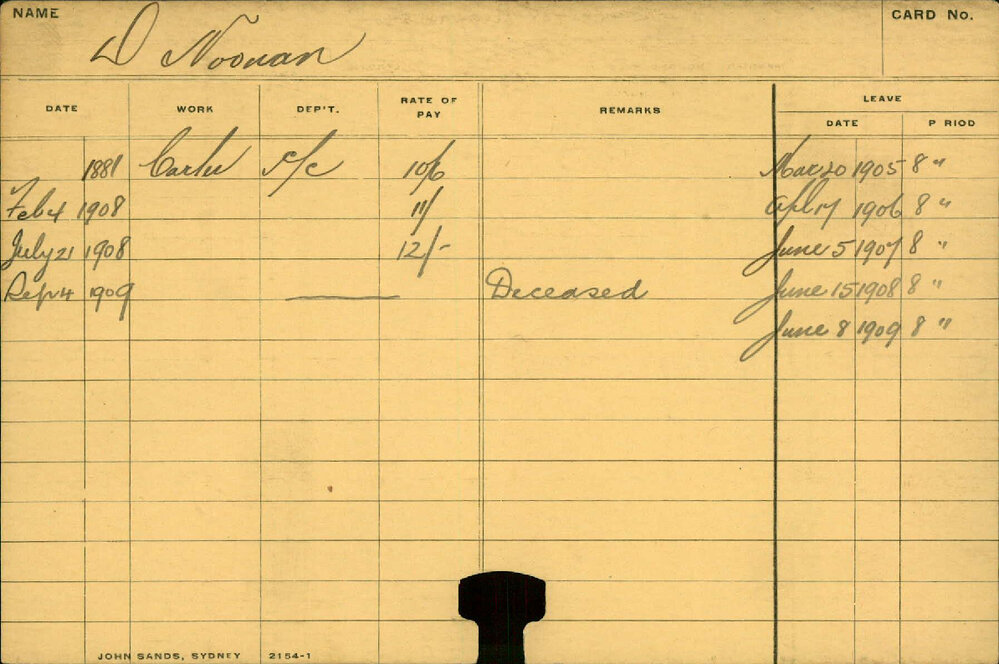 NAME
CARD No.
D Noonan
DATE WORK DEP'T. RATE OF PAY REMARKS LEAVE
DATE P RIOD
1881 Carter 10/6 Mar 20 1905 8 "
Feb 4 1908 11/ Apl 17 1906 8 "
July 21 1908 12/- June 5 1907 8 "
Sep 4 1909 Deceased June 15 1908 8 "
June 8 1909 8 "
JOHN SANDS, SYDNEY 2154-1